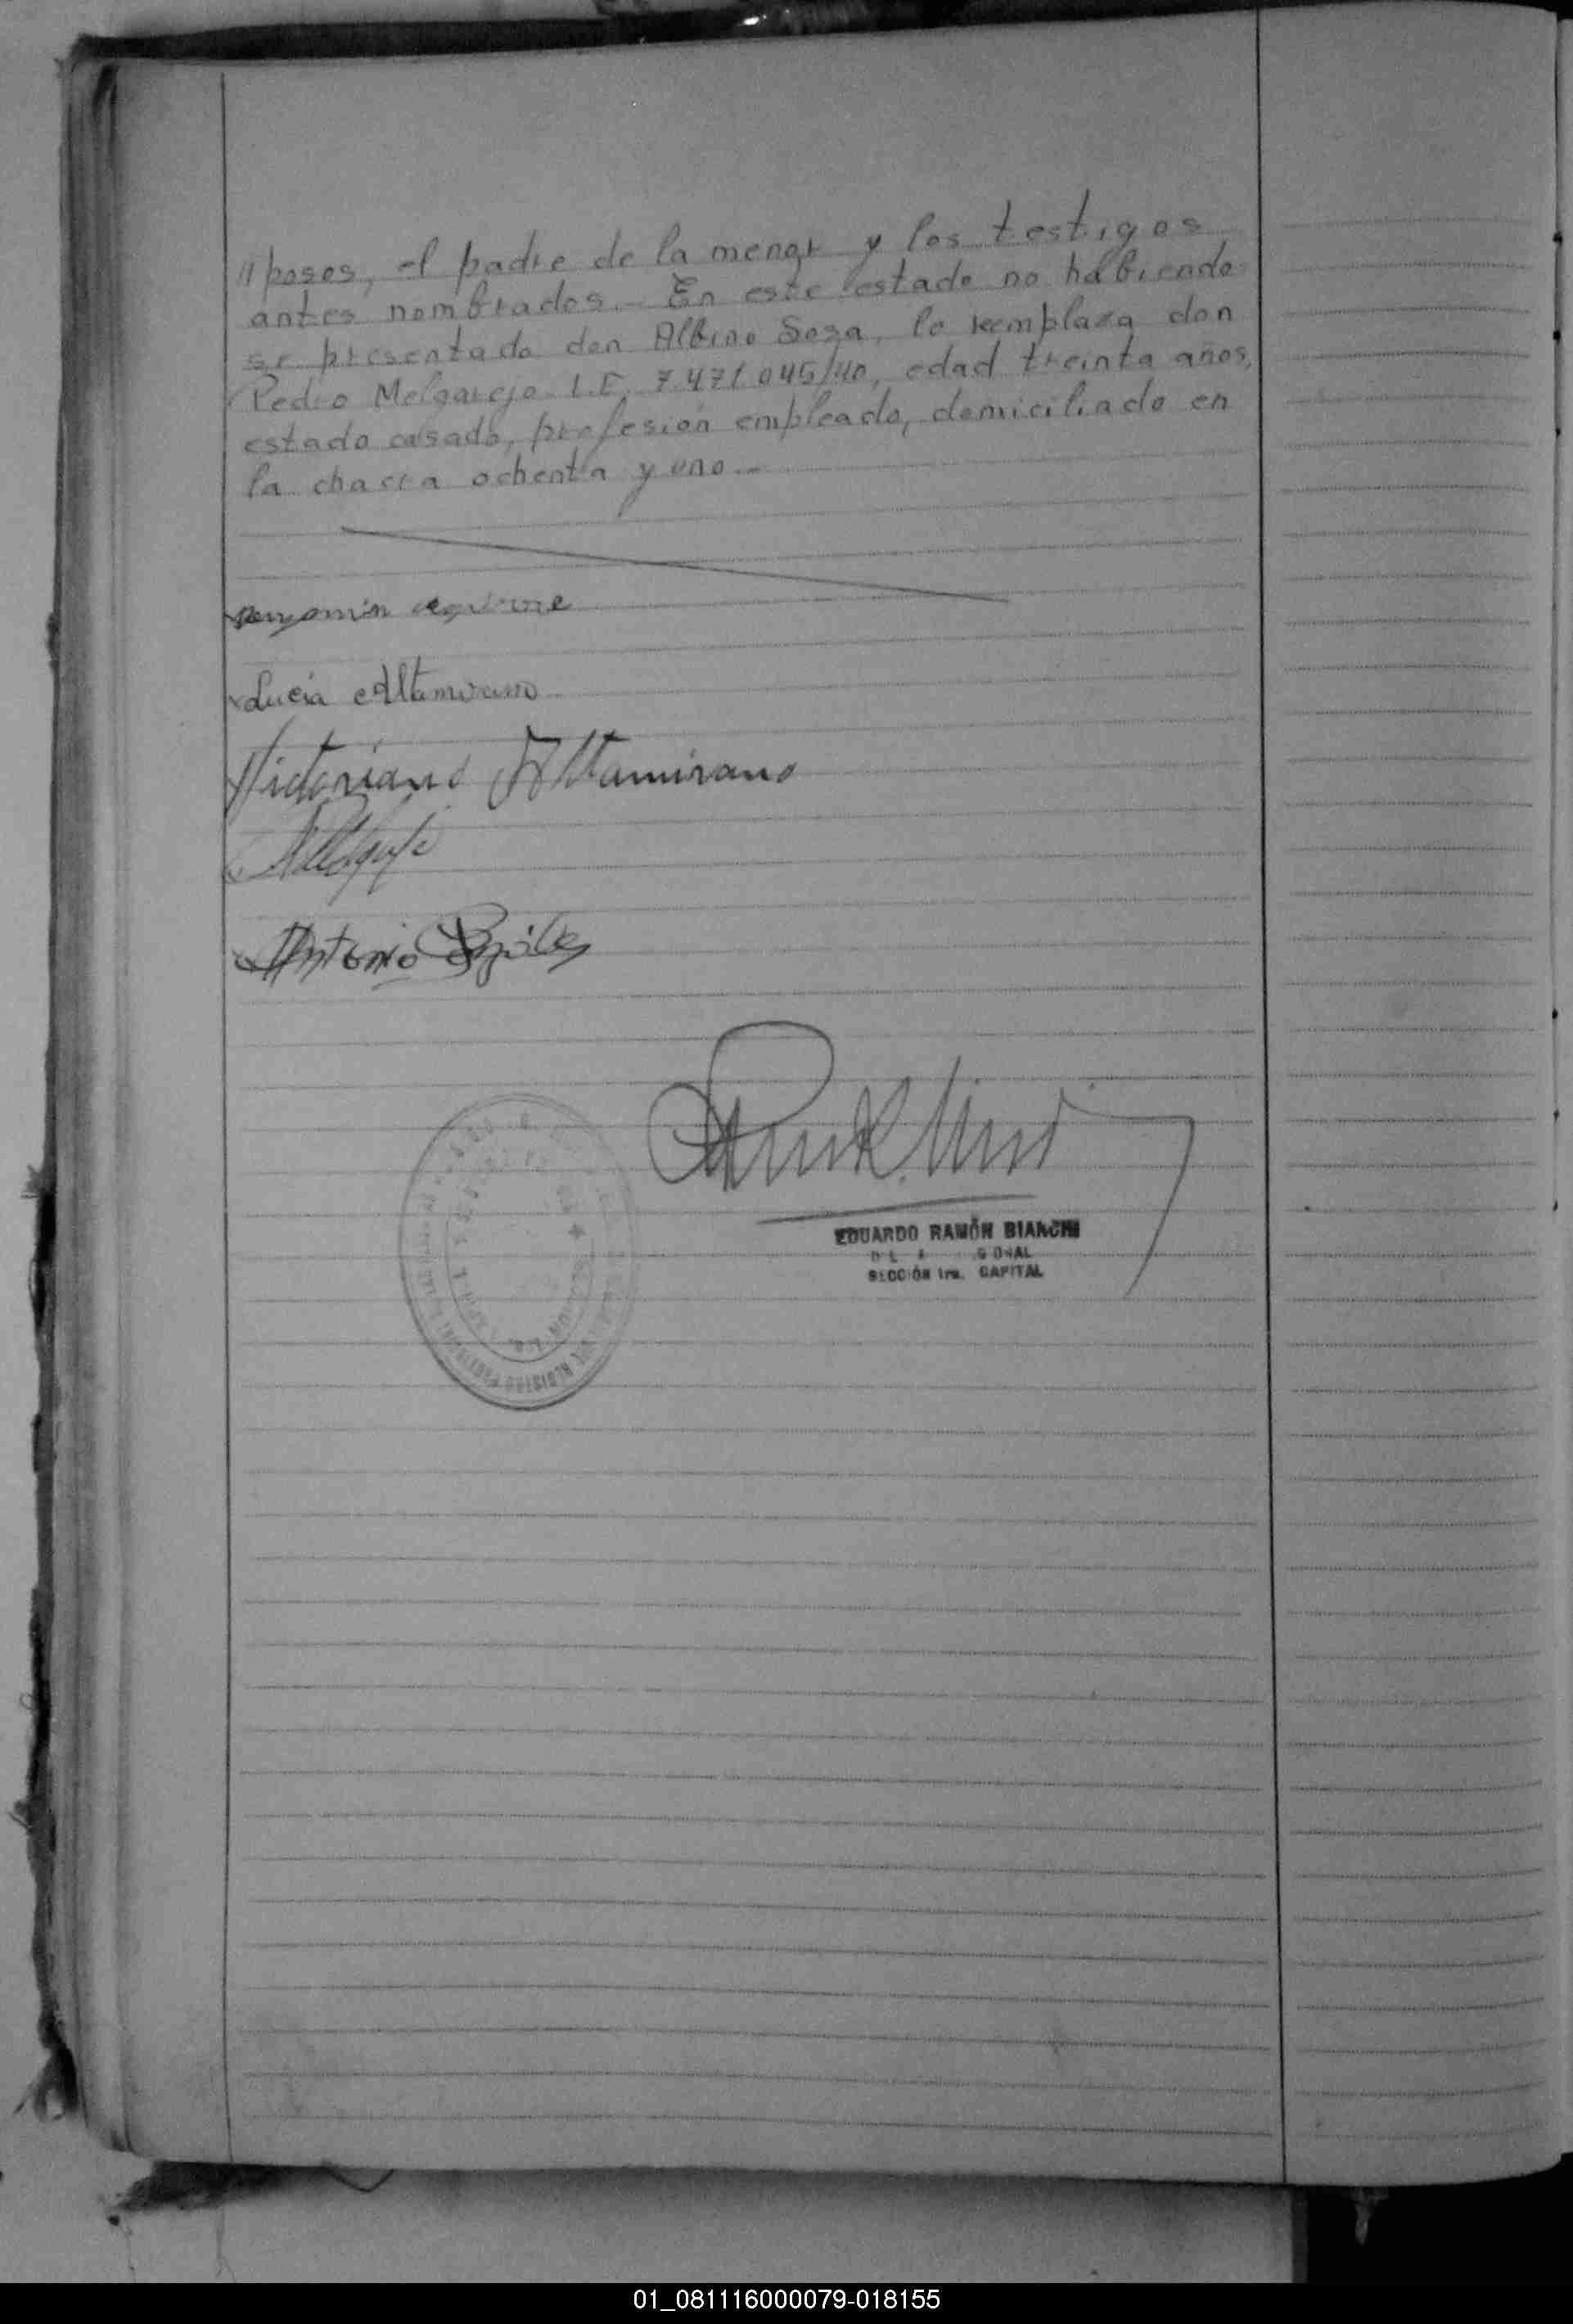 "posos, el padre de la menor y los testigos
antes nombrados.- En este estado no habiendo
se presentado don Albino Sosa, lo reemplaza don
Pedro Melgarejo L.E. 7.471.045/40, edad treinta años,
estado casado, profesión empleado, domiciliado en
la chacra ochenta y uno.-
Lucia Altamirano
Victoriano Altamirano
Antonio
EDUARDO RAMÓN BIANCHI
SECCIÓN 1ra. CAPITAL
01_081116000079-018155